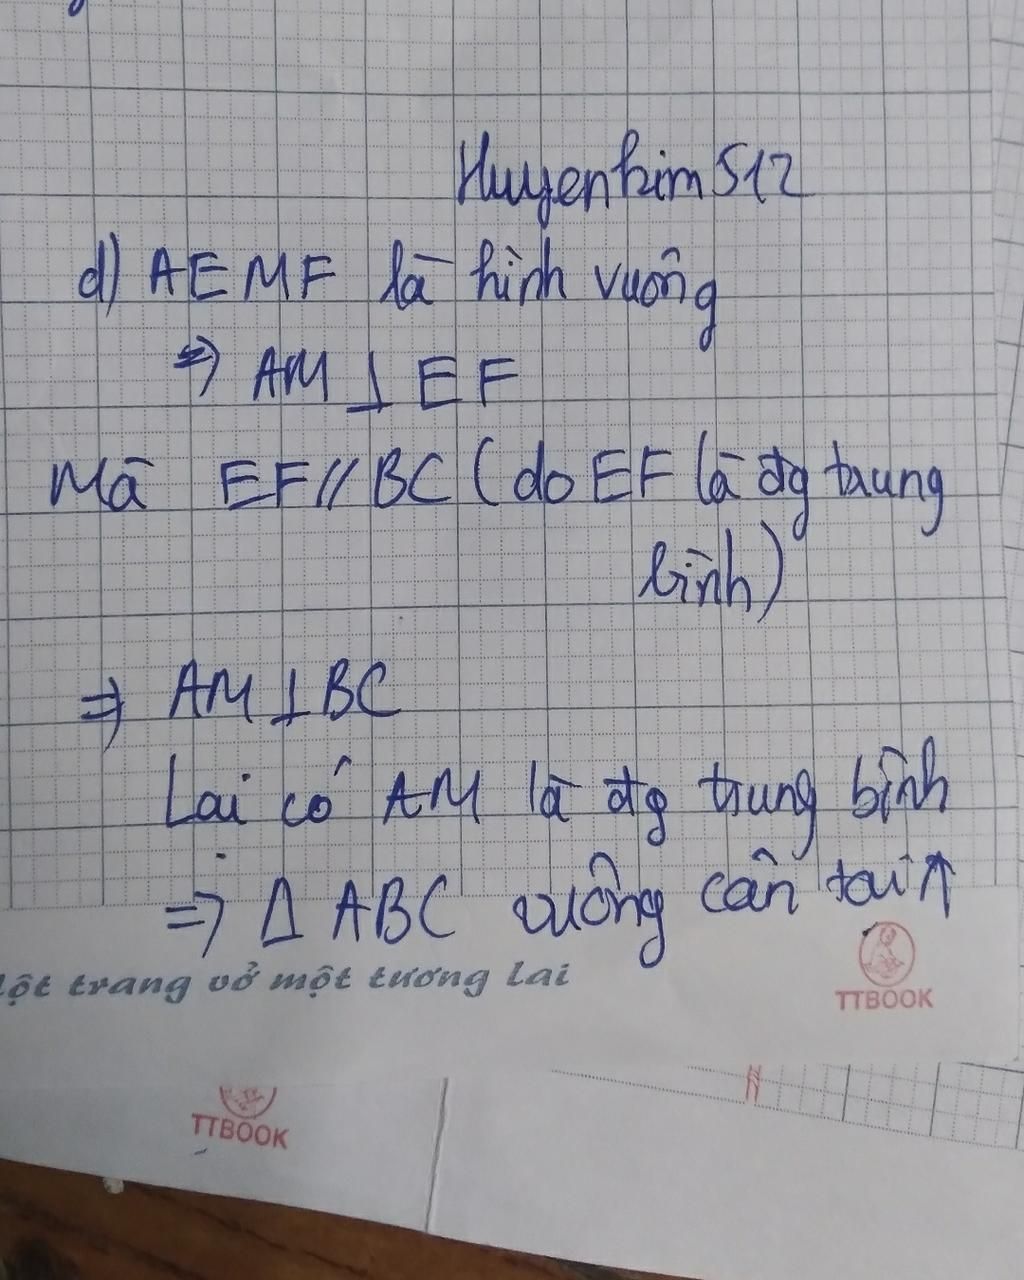 Huyenkim512
d) AEMF là hình vuông
=> AM ⊥ EF
Mà EF // BC ( do EF là đg trung
bình)
=> AM ⊥ BC
Lai có AM là đg trung bình
=> Δ ABC vuông cân tai A
ột trang vở một tương lai
TTBOOK
TTBOOK